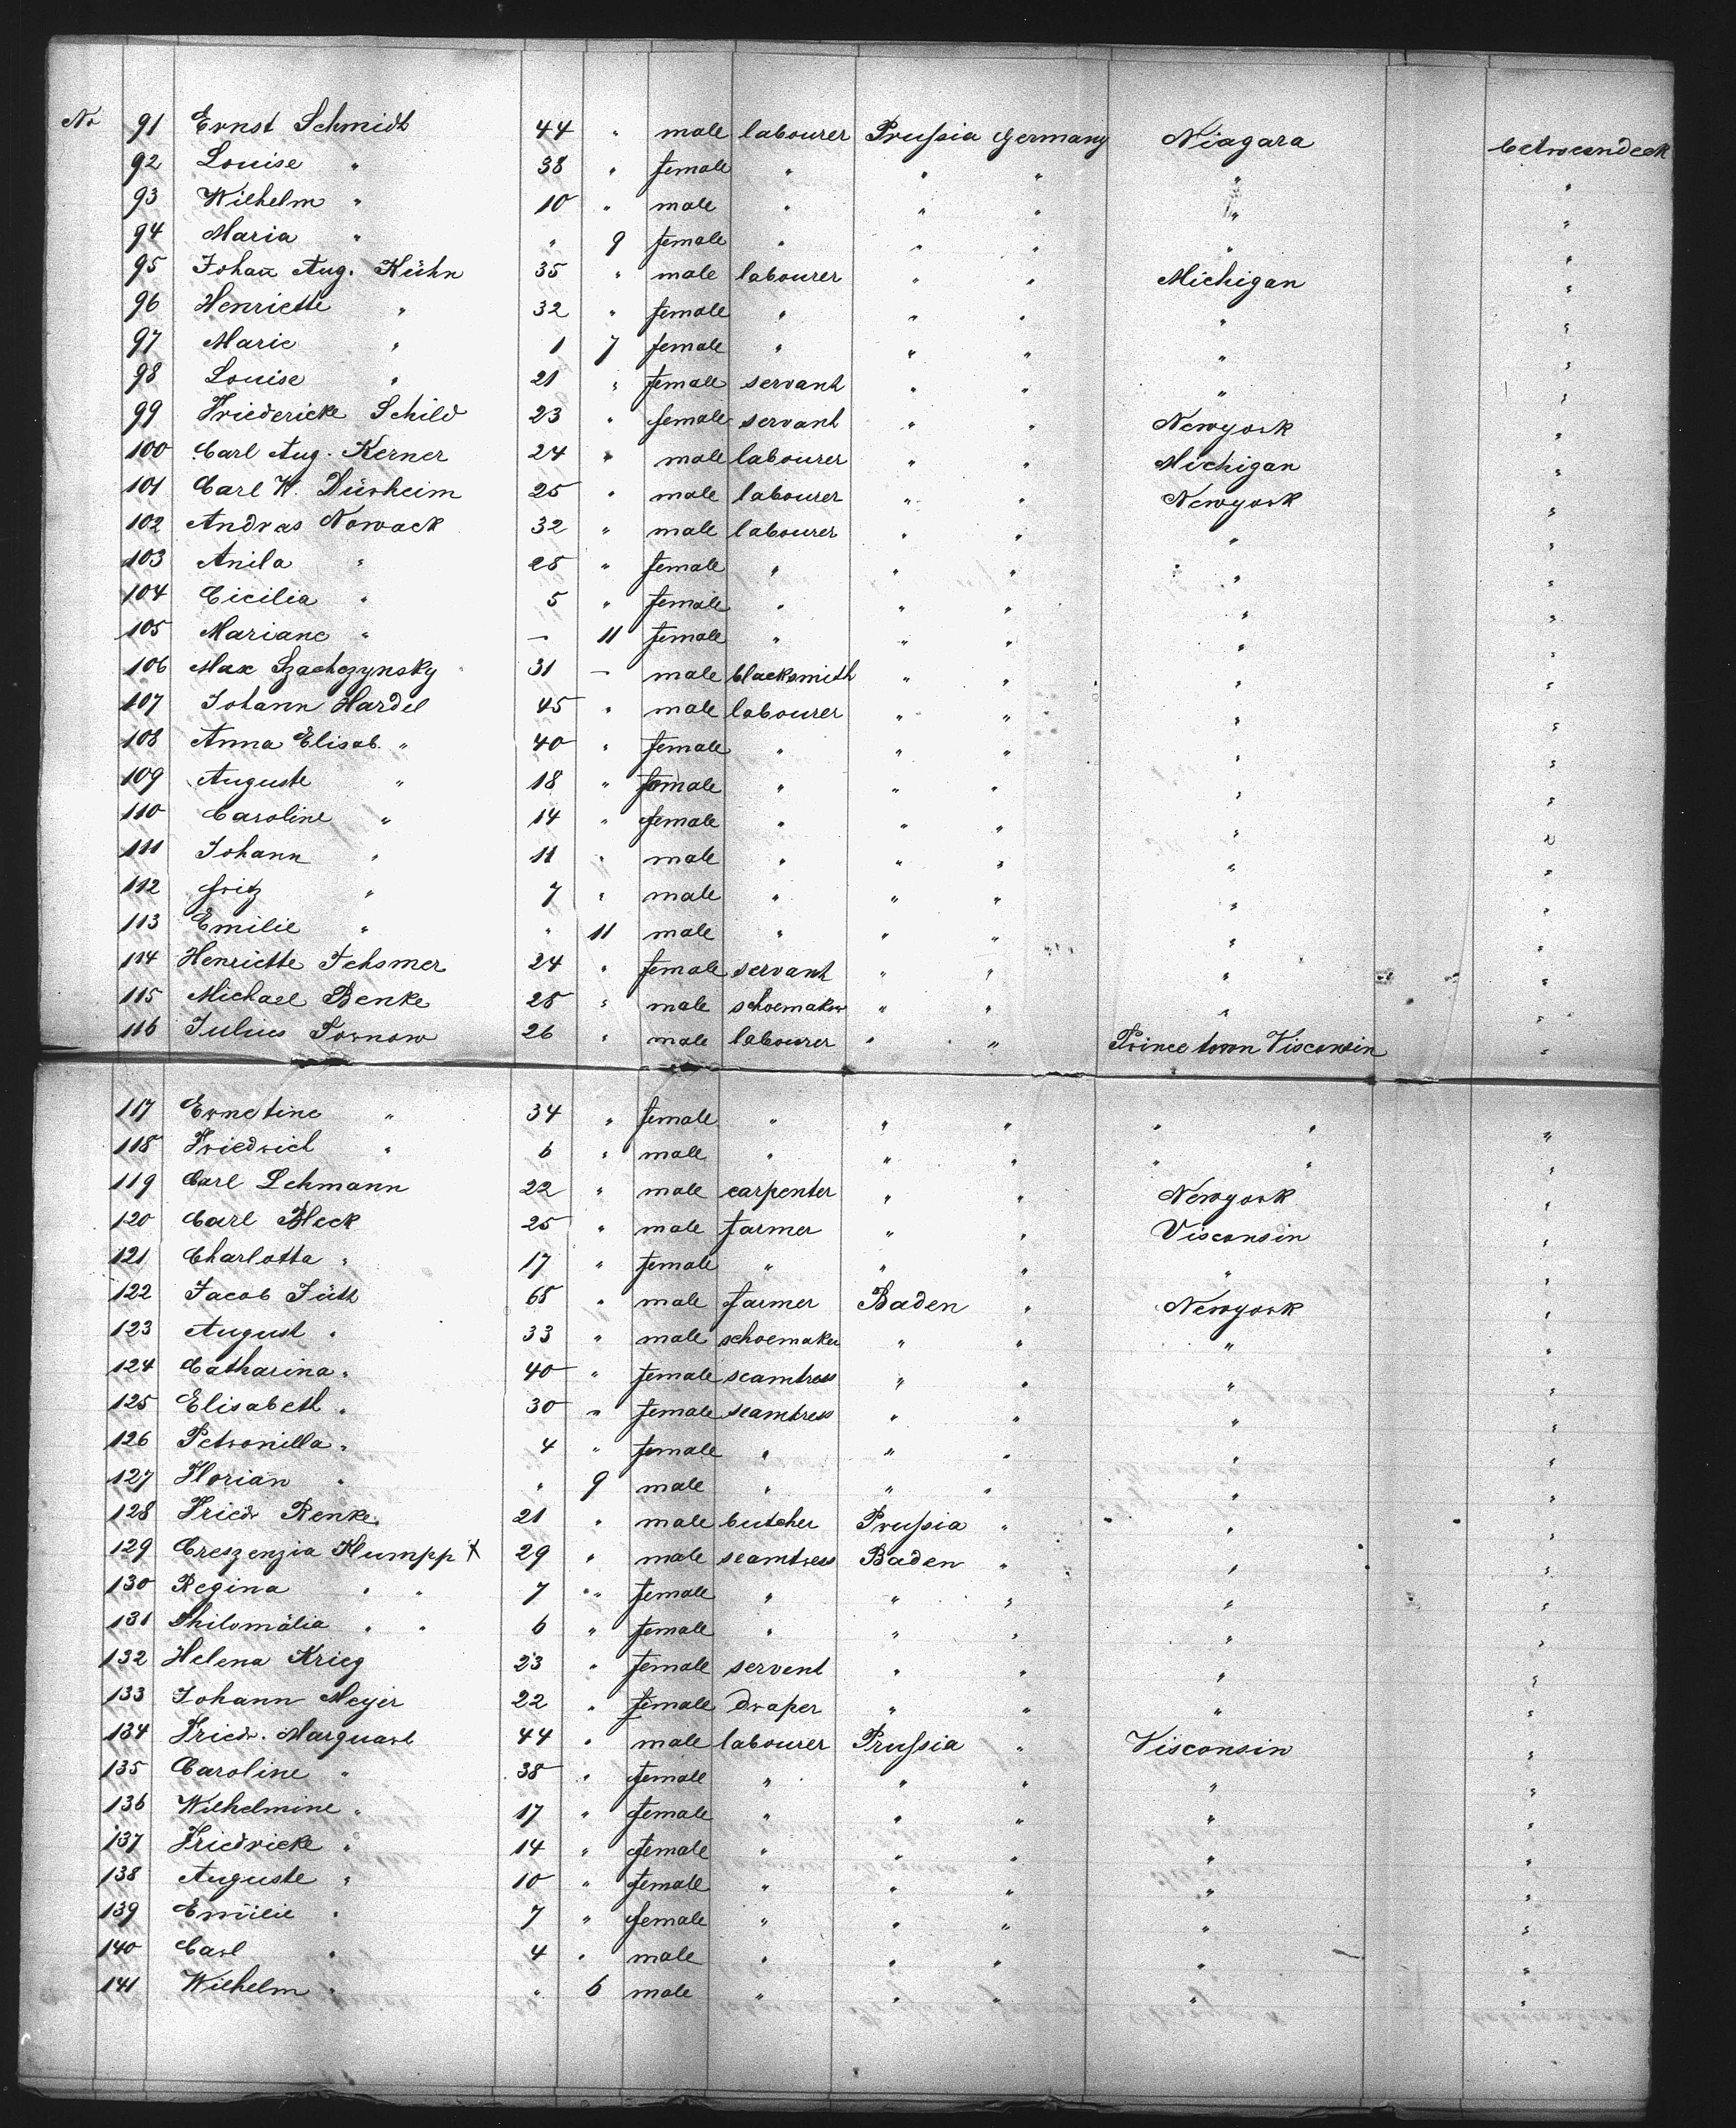 No 91 Ernst Schmidt 44 " male labourer Prussia Germany Niagara betweendeck
92 Louise " 38 " female " " " " "
93 Wilhelm " 10 " male " " " " "
94 Maria " " 9 female " " " " "
95 Johan Aug. Kühn 35 " male labourer " " Michigan "
96 Henriette " 32 " female " " " " "
97 Marie " 1 7 female " " " " "
98 Louise " 21 " female servant " " " "
99 Friedericke Schild 23 " female servant " " Newyork "
100 Carl Aug. Kerner 24 " male labourer " " Michigan "
101 Carl W. Dürheim 25 " male labourer " " Newyork "
102 Andras Nowack 32 " male labourer " " " "
103 Anila " 25 " female " " " " "
104 Cicilia " 5 " female " " " " "
105 Mariane " — 11 female " " " " "
106 Max Szachczynsky 31 — male blacksmith " " " "
107 Johann Hardel 45 " male labourer " " " "
108 Anna Elisab. " 40 " female " " " " "
109 Auguste " 18 " female " " " " "
110 Caroline " 14 " female " " " " "
111 Johann " 11 " male " " " " "
112 Fritz " 7 " male " " " " "
113 Emilie " " 11 male " " " " "
114 Henriette Tehsmer 24 " female servant " " " "
115 Michael Benke 25 " male schoemaker " " " "
116 Julius Tornow 26 " male labourer " " Prince town Visconsin "
117 Ernetine " 34 " female " " " " " "
118 Friedrich " 6 " male " " " " " "
119 Carl Lehmann 22 " male carpenter " " Newyork "
120 Carl Bleck 25 " male farmer " " Visconsin "
121 Charlotta " 17 " female " " " " "
122 Jacob Füth 65 " male farmer Baden " Newyork "
123 August " 33 " male schoemaker " " " "
124 Catharina " 40 " female seamtress " " " "
125 Elisabeth " 30 " female seamtress " " " "
126 Petronilla " 4 " female " " " " "
127 Florian " " 9 male " " " " "
128 Friedr Renke 21 " male butcher Prussia " " "
129 Creszenzia Klumpp X 29 " male seamtress Baden " " "
130 Regina " " 7 " female " " " " "
131 Philomälia " " 6 " female " " " " "
132 Helena Krieg 23 " female servent " " " "
133 Johann Meyer 22 " female draper " " " "
134 Friedr. Marquart 44 " male labourer Prussia " Visconsin "
135 Caroline " 38 " female " " " " "
136 Wilhelmine " 17 " female " " " " "
137 Friedricke " 14 " female " " " " "
138 Auguste " 10 " female " " " " "
139 Emilie " 7 " female " " " " "
140 Carl " 4 " male " " " " "
141 Wilhelm " " 6 male " " " " "